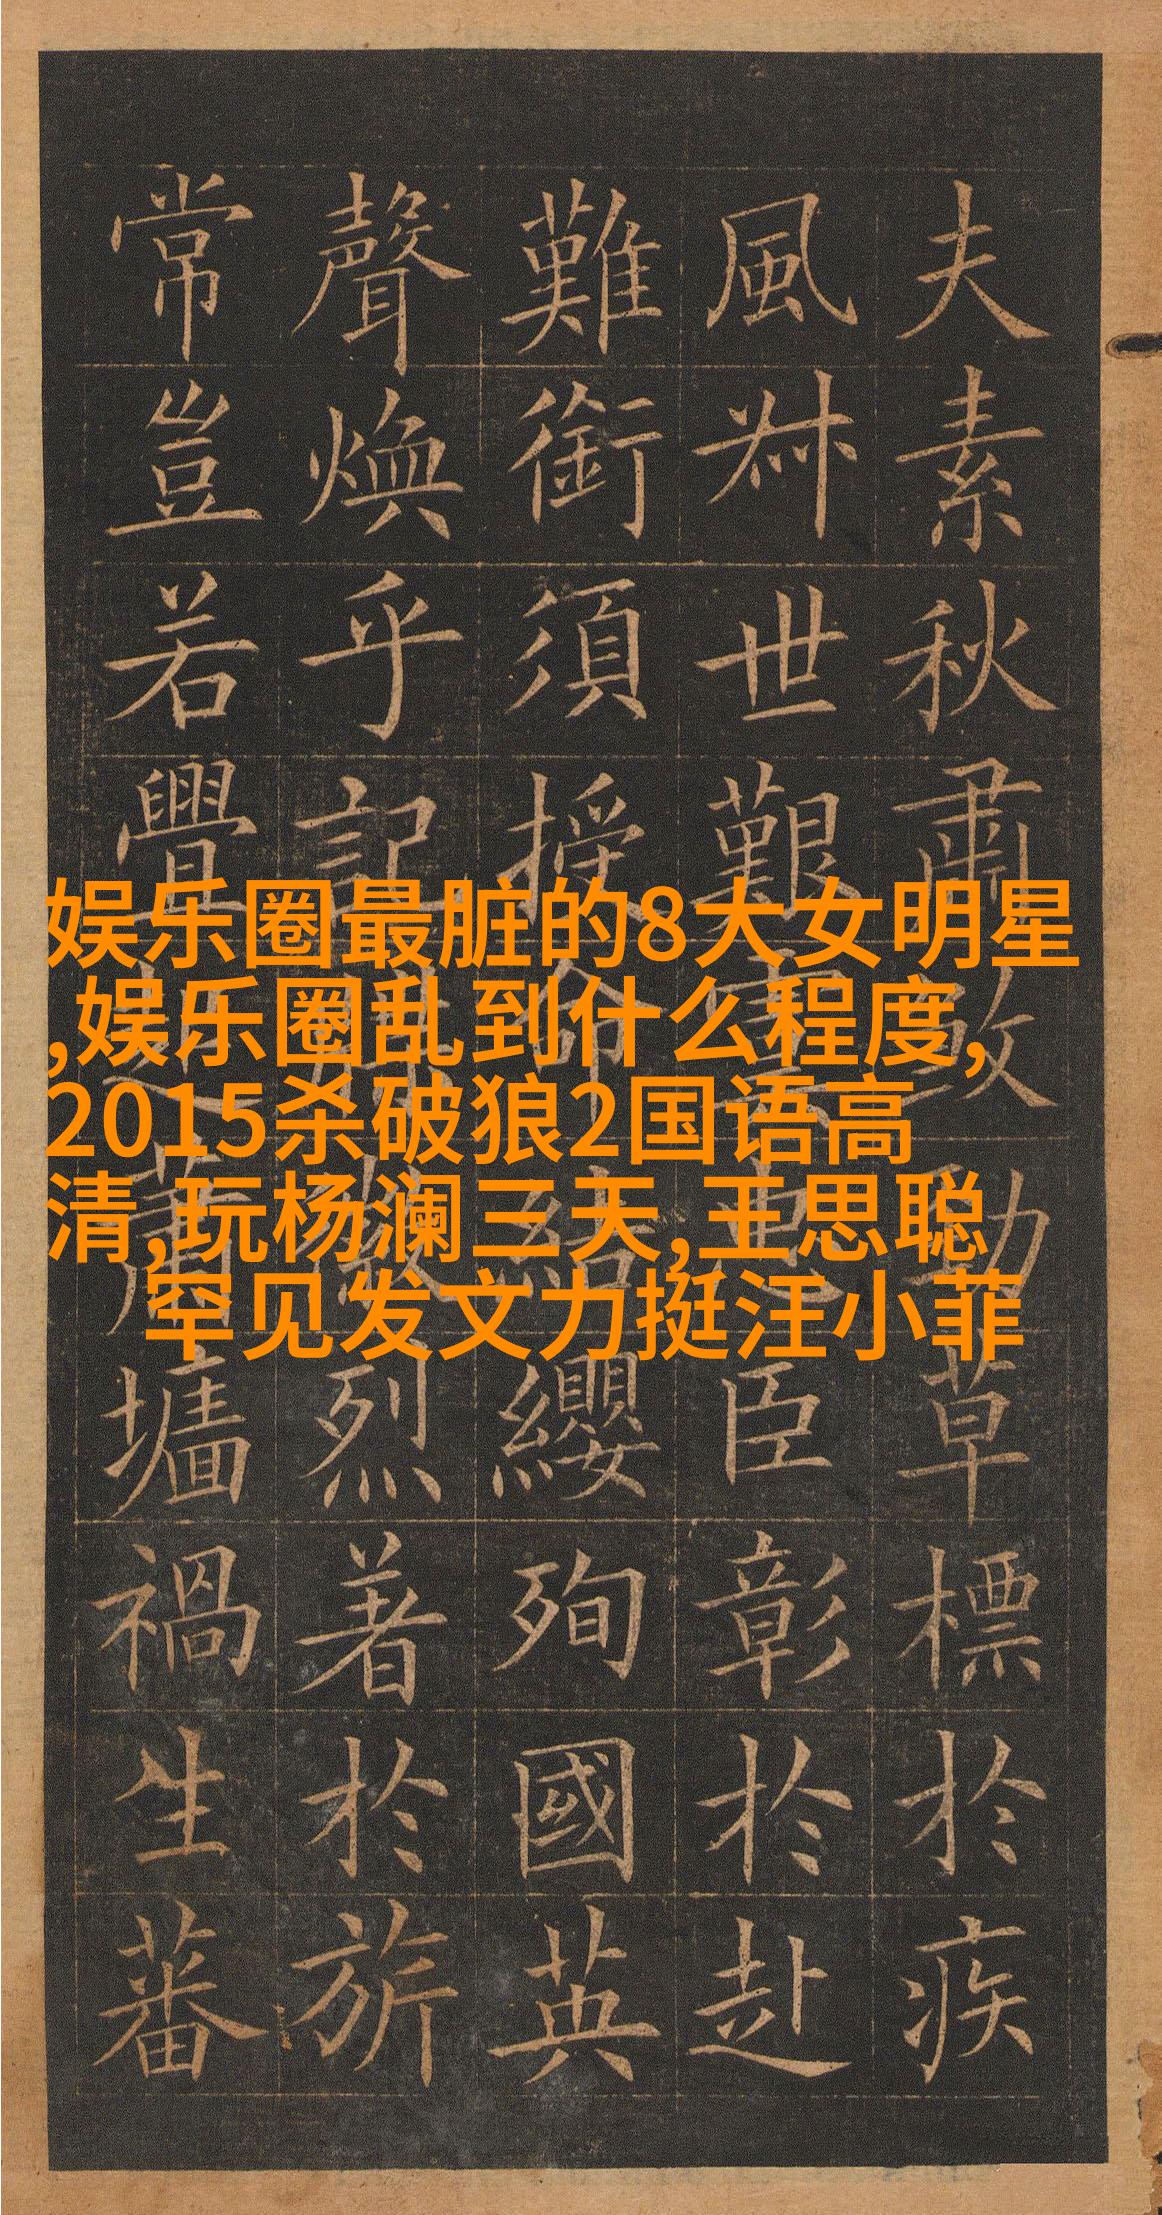 夫素秋肅煞勁草標於疾
風叔世艱虞忠臣彰於赴
難銜須授命結纓殉國英
聲煥乎記牒徽烈著於旂
常豈若舋起蕭墻禍生蕃
娱乐圈最脏的8大女明星
,娱乐圈乱到什么程度,
2015杀破狼2国语高
清,玩杨澜三天,王思聪
罕见发文力挺汪小菲